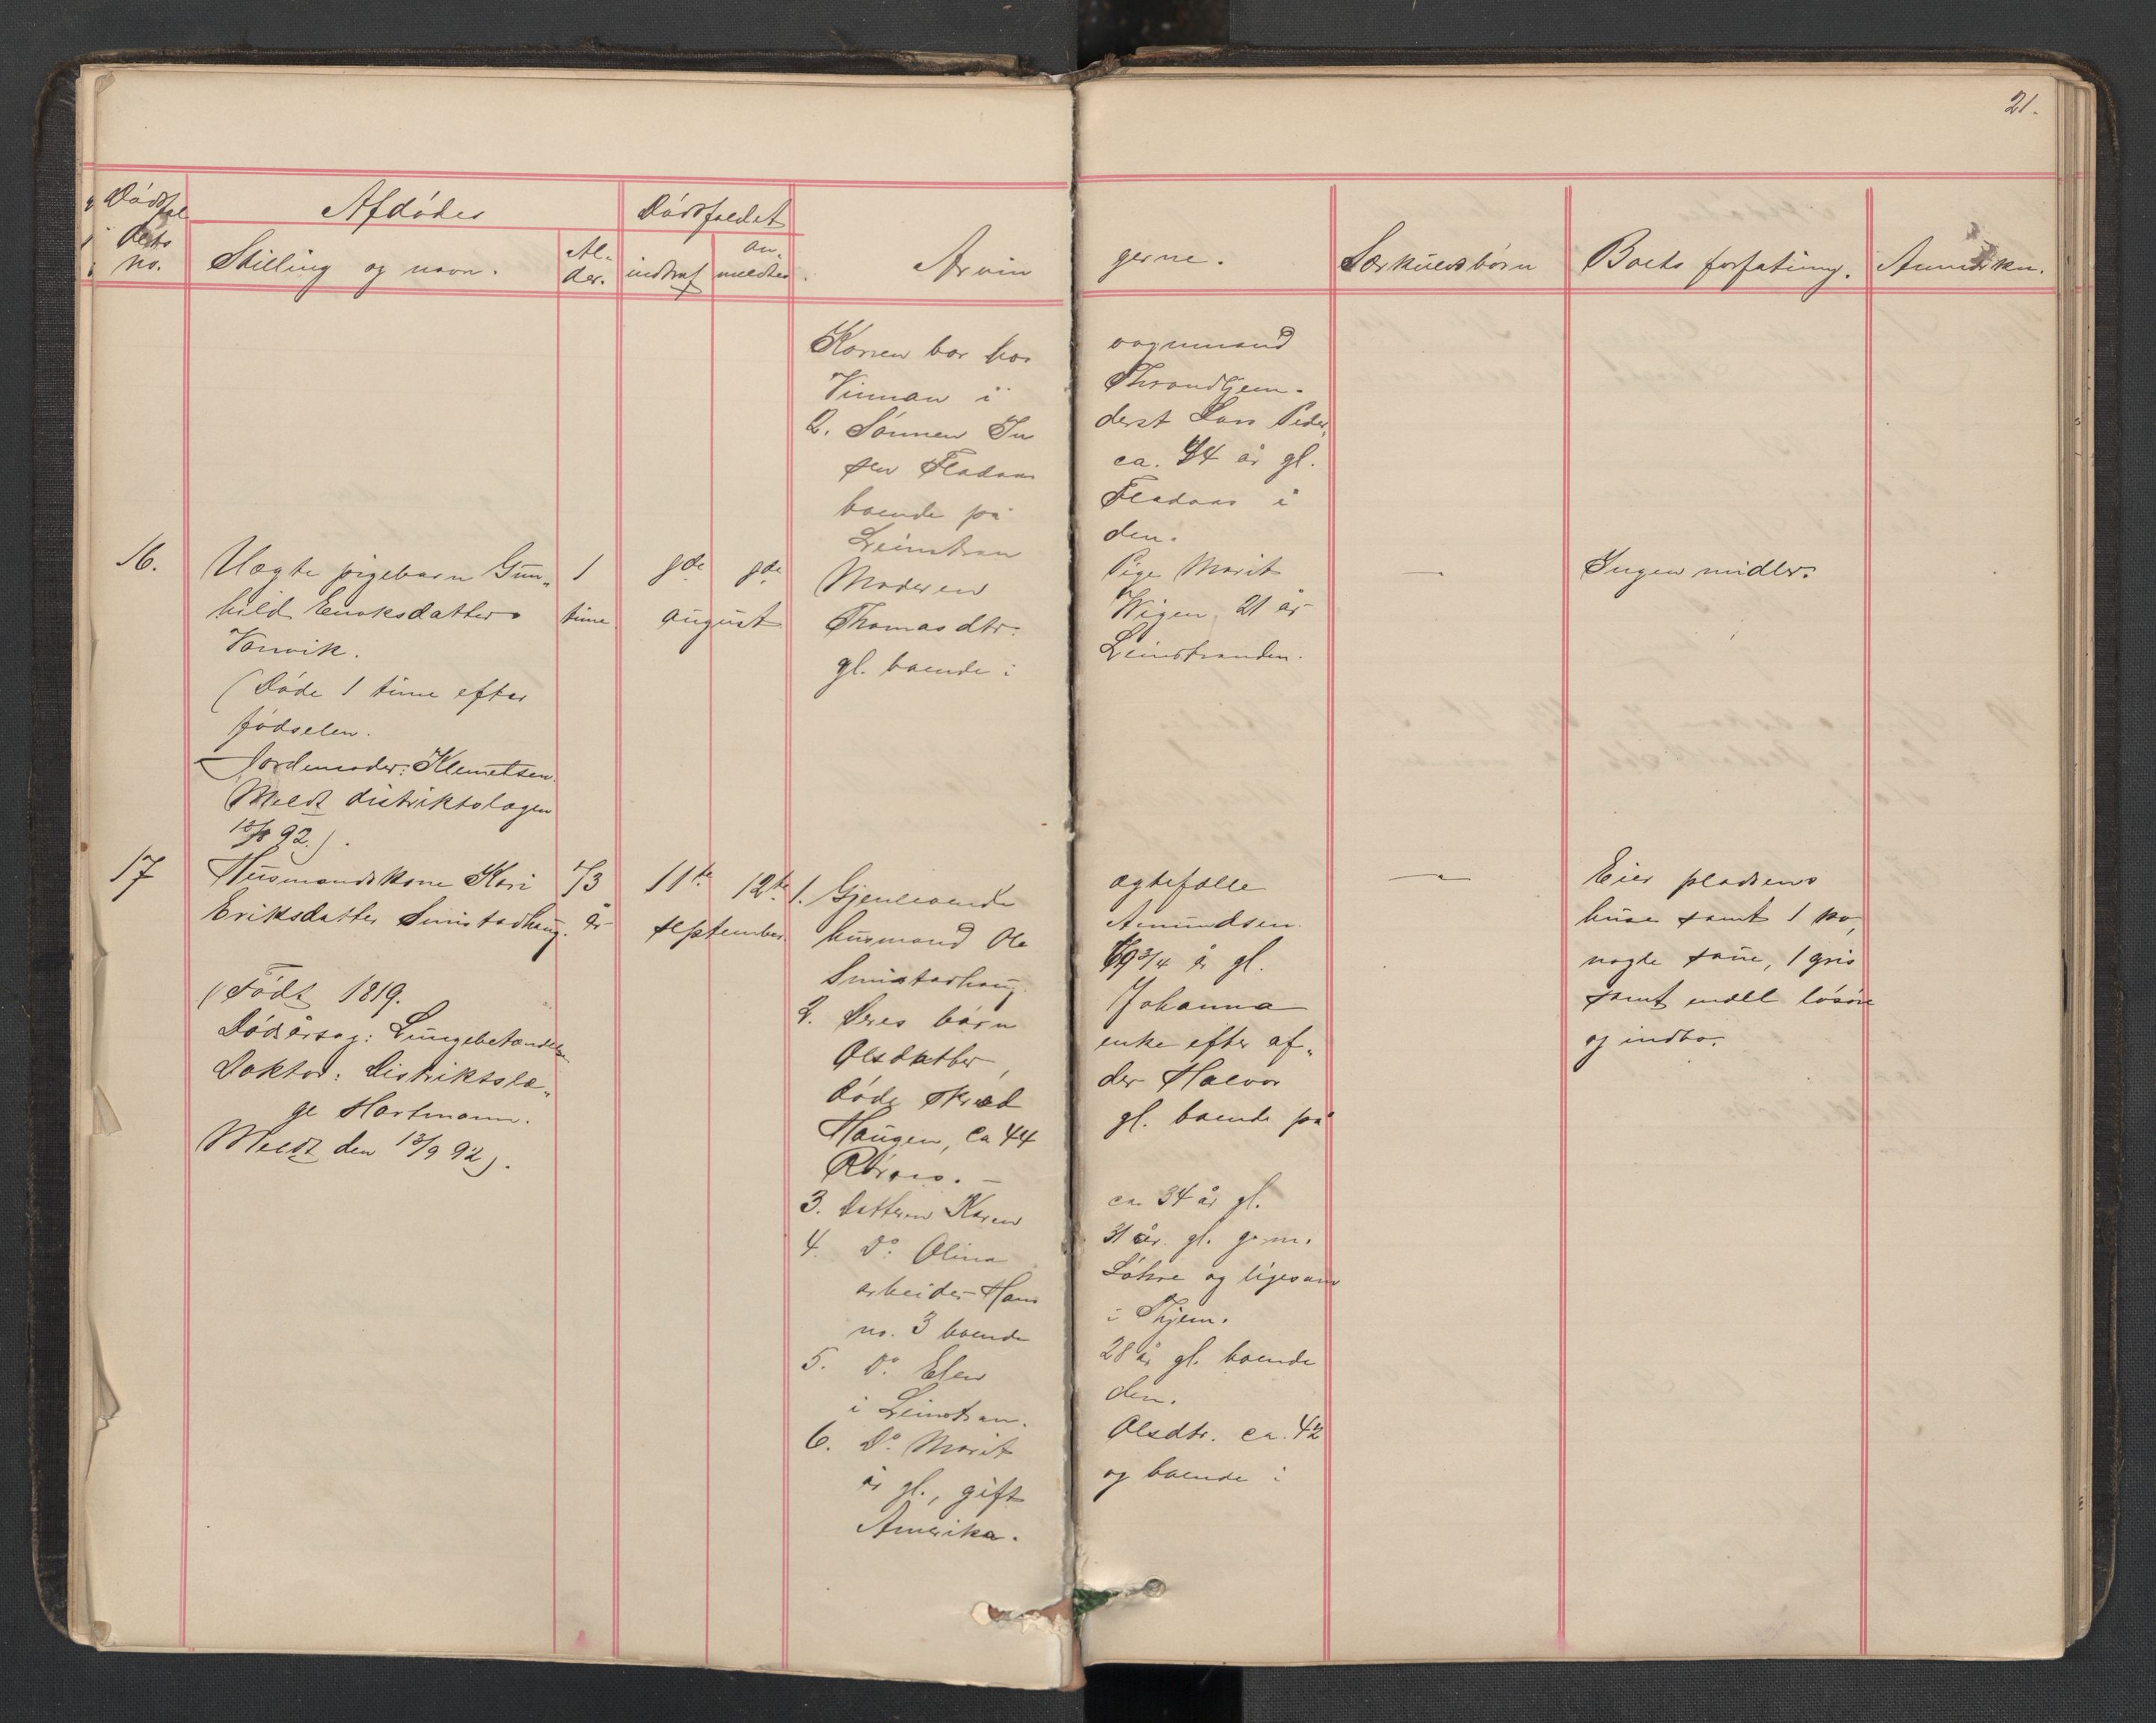 21.
Dødsfal
dets
no.
Afdødes
Stilling og navn.
Al-
der.
Dødsfaldet
indtraf
an-
meldtes
Arvin
gerne.
Særkuldsbørn
Boets forfatning.
Anmærkn.
Konen bor hos
vognmand
Vinman i
Throndhjem.
2. Sønnen In
derst Lars Peder,
sen Fladaas
ca. 44 år gl.
boende på
Fladaas i
Leinstran
den.
16.
Uægte pigebarn Gun„
hild Enoksdatter
Vonvik.
(Døde 1 time efter
fødselen.
Jordemoder: Klemetsen.
Meldt distriktslægen
13/8 92.).
1
time
8de
8de
august
Moderen
Pige Marit
Thomasdtr.
Wigen, 21 år
gl. boende i
Leinstranden.
—
Ingen midler.
17
Husmandskone Kari
Eriksdatter Smistadhaug.
(Født 1819.
Dødsårsag: Lungebetændelse
Doktor: Distriktslæ„
ge Hartmann.
Meldt den 13/9 92).
73
år
11te
12te
september.
1. Gjenlevende
ægtefælle
husmand Ole
Amundsen
Smistadhaug.
69 3/4 år gl.
2. Deres børn
Johanna
Olsdatter,
enke efter af„
døde skræd
der Halvor
Haugen, ca 44
gl. boende på
Røraas. —
3. Datteren Karen
ca 34 år gl.
4. Do. Olina
31 år gl. g. m.
arbeider Hans
Løhre og ligesom
no. 3 boende
i Thjem.
5. Do. Elen
28 år gl. boende
i Leinstran.
den.
6. Do. Marit
Olsdtr. ca. 42
år gl., gift
og boende i
Amerika.
—
Eier pladsens
huse samt 1 ko,
nogle saue, 1 gris
samt endel løsøre
og indbo.